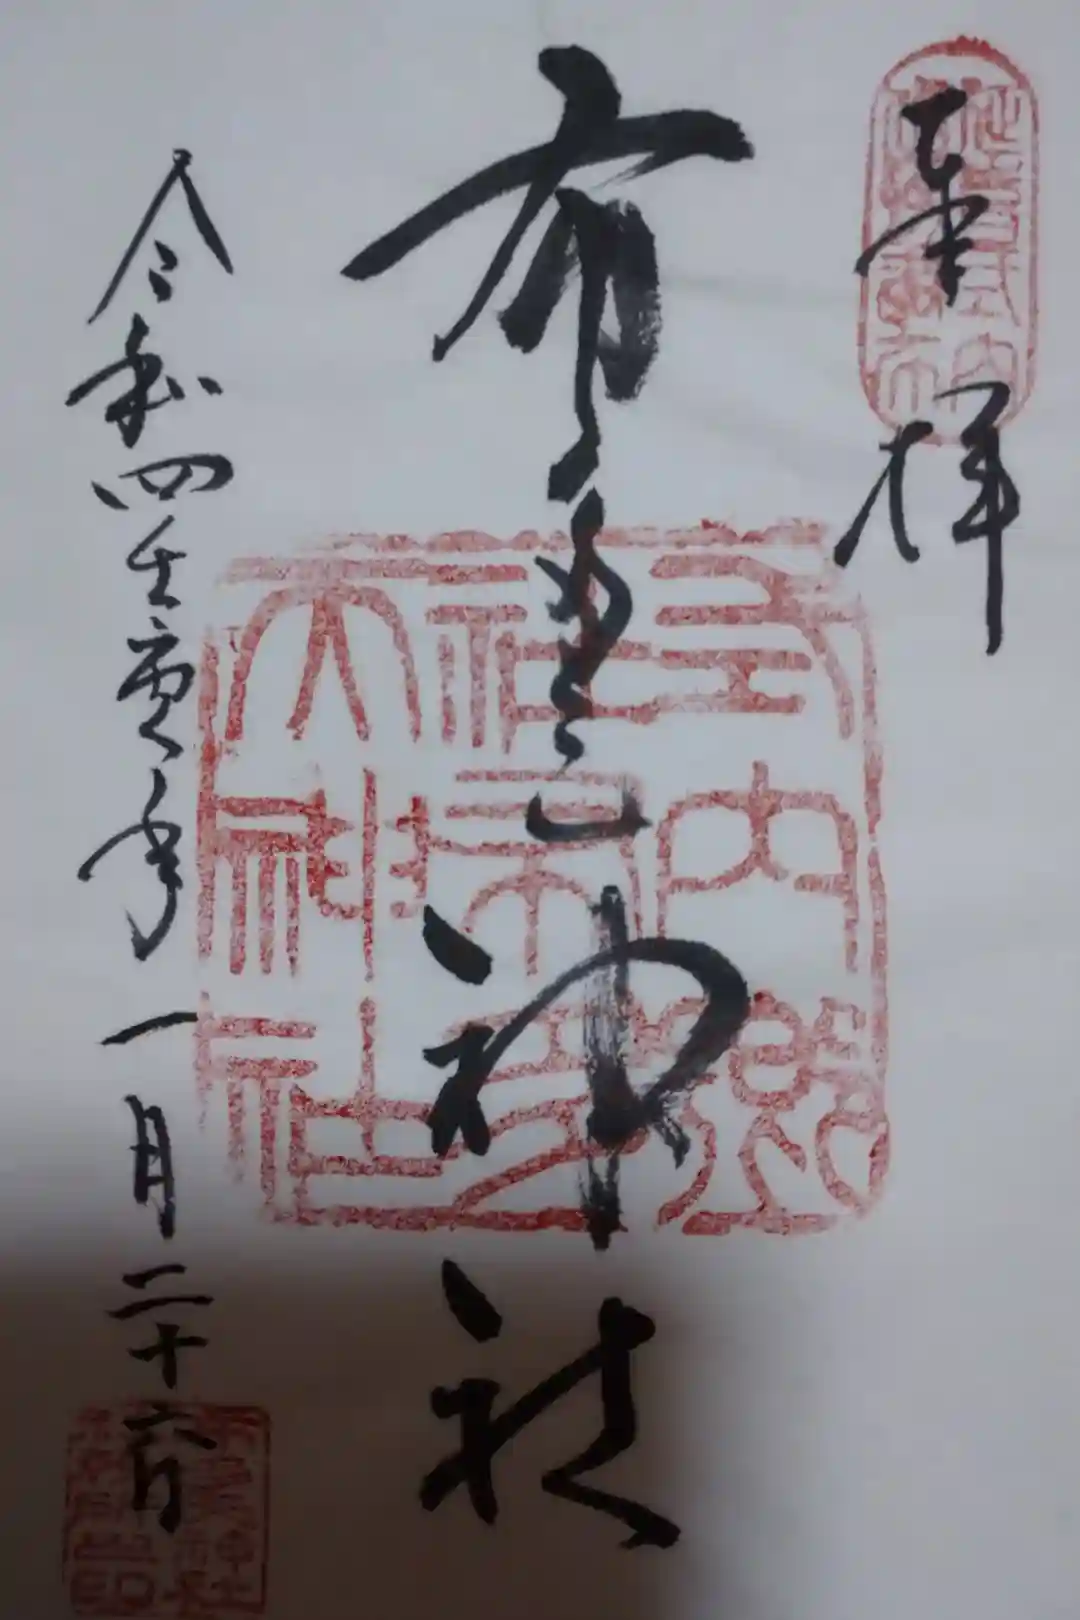 奉拝
布多天神社
式内郷
社布多
天神社
令和四壬寅年一月二十六日